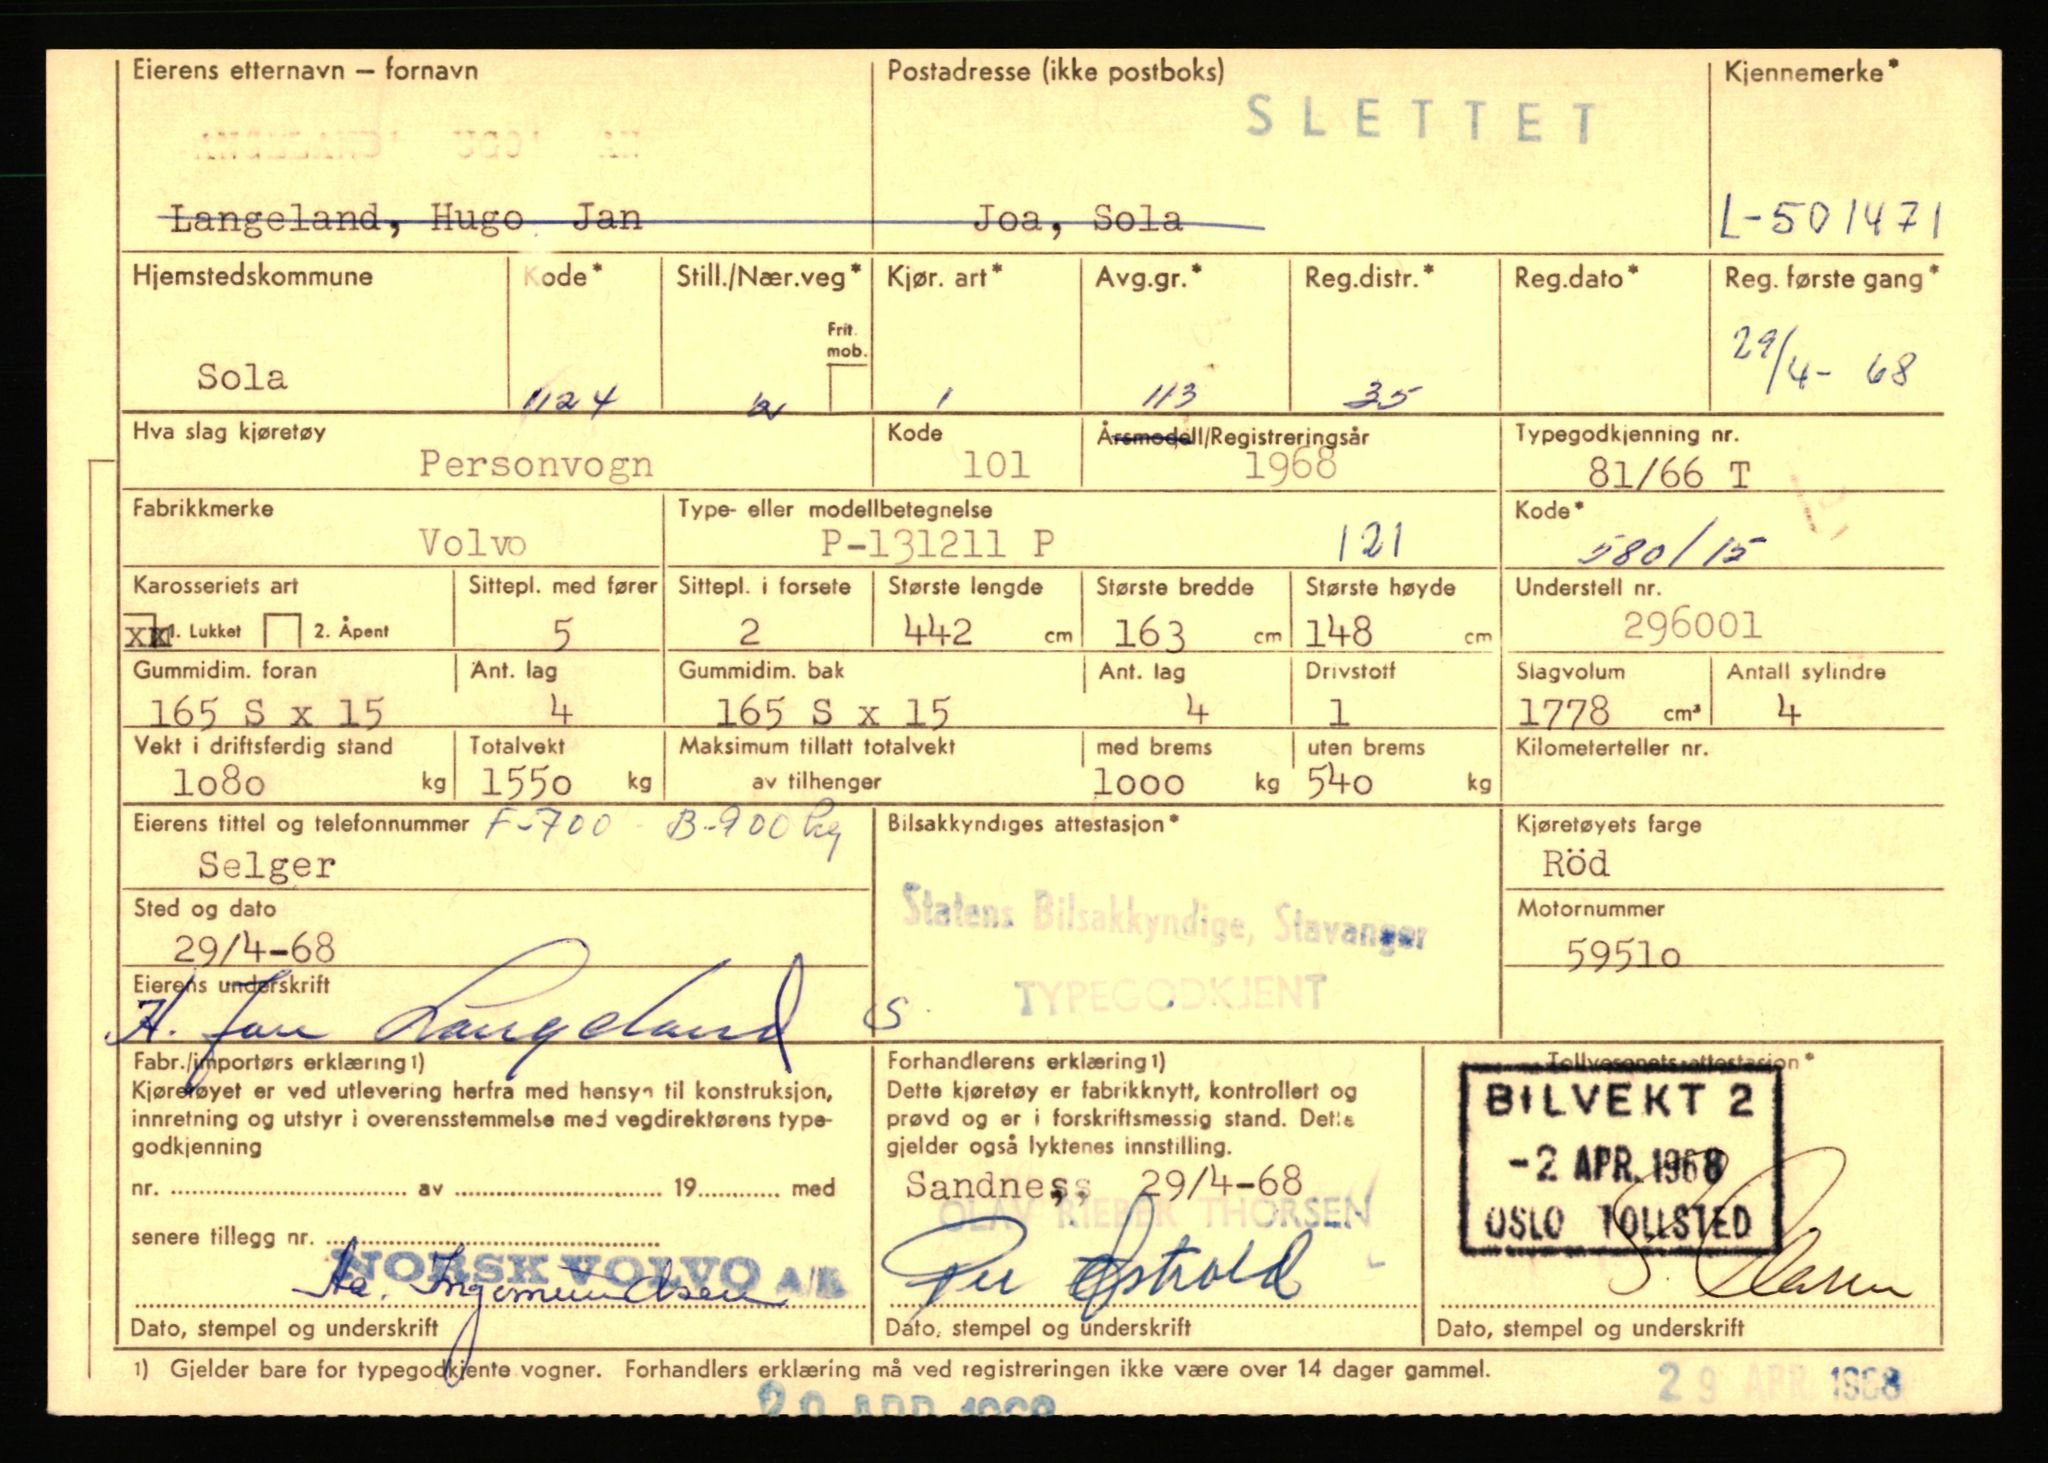 Eierens etternavn – fornavn Postadresse (ikke postboks) Kjennemerke*
SLETTET
Langeland, Hugo Jan Joa, Sola L-501471
Hjemstedskommune Kode* Still./Nær.veg* Kjør. art* Avg.gr.* Reg.distr.* Reg.dato* Reg. første gang*
Frit. mob.
Sola 1124 1 113 35 29/4- 68
Hva slag kjøretøy Kode Årsmodell/Registreringsår Typegodkjenning nr.
Personvogn 101 1968 81/66 T
Fabrikkmerke Type- eller modellbetegnelse Kode*
Volvo P-131211 P 121 580/15
Karosseriets art Sittepl. med fører Sittepl. i forsete Største lengde Største bredde Største høyde Understell nr.
xx 1. Lukket 2. Åpent 5 2 442 cm 163 cm 148 cm 296001
Gummidim. foran Ant. lag Gummidim. bak Ant. lag Drivstoff Slagvolum Antall sylindre
165 S x 15 4 165 S x 15 4 1 1778 cm³ 4
Vekt i driftsferdig stand Totalvekt Maksimum tillatt totalvekt med brems uten brems Kilometerteller nr.
1080 kg 1550 kg av tilhenger 1000 kg 540 kg
Eierens tittel og telefonnummer F-700 B-900 kg Bilsakkyndiges attestasjon* Kjøretøyets farge
Selger Röd
Sted og dato Statens Bilsakkyndige, Stavanger Motornummer
29/4-68 59510
Eierens underskrift TYPEGODKJENT
H. Jan Langeland S.
Fabr./importørs erklæring 1) Forhandlerens erklæring 1) Tollvesenets attestasjon*
Kjøretøyet er ved utlevering herfra med hensyn til konstruksjon, Dette kjøretøy er fabrikknytt, kontrollert og
innretning og utstyr i overensstemmelse med vegdirektørens type- prøvd og er i forskriftsmessig stand. Dette
godkjenning gjelder også lyktenes innstilling.
BILVEKT 2
-2 APR. 1968
OSLO TOLLSTED
nr. av 19 med Sandnes, 29/4-68
OLAV RIEBER THORSEN
senere tillegg nr.
NORSK VOLVO A/S
Ingemundsen Per Østvold
Dato, stempel og underskrift Dato, stempel og underskrift Dato, stempel og underskrift
1) Gjelder bare for typegodkjente vogner. Forhandlers erklæring må ved registreringen ikke være over 14 dager gammel.
29 APR. 1968
APR 1968